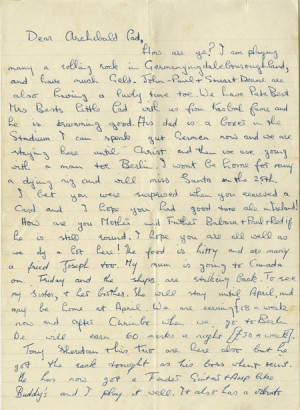 Dear Archibald Lad,
How are ye? I am playing
many a rolling rock in
and have much Geld. John-Paul + Stuart Deane are
also having a lively time toe. We have Pete Best
Mrs Bests little Lad with us from Kasbah fame and
he is drumming good. His dad is a Boxer in the
Stadium. I can speak gut German now and we are
staying here until Christ and then we are going
with a man toe Berlin. I wont be home for many
a dying nig and will miss Santa on the 25th.
I bet you were surprised when you received a
Card and I hope you had good time all in Ireland!
How are you Mother and Father + Rod if
he is still round. I hope you are all well as
we dy a lot here! The food is hitty and see many
a fried Joseph too. My mum is going to Canada
on Friday and the ships are striking back. To see
my sister, + her brother. She will stay until April, and
may be home at April. We are earning £18 a week
now and after Chrimbo when we go to Berlin
we will earn 60 marks a night [£30 a week]
Tony Sheridan + his Trio are here also but he
got the sack tonight as his boss went
He has now got a Fender Guitar + Amp like
Buddy's and I play it well. It also has a vibrato